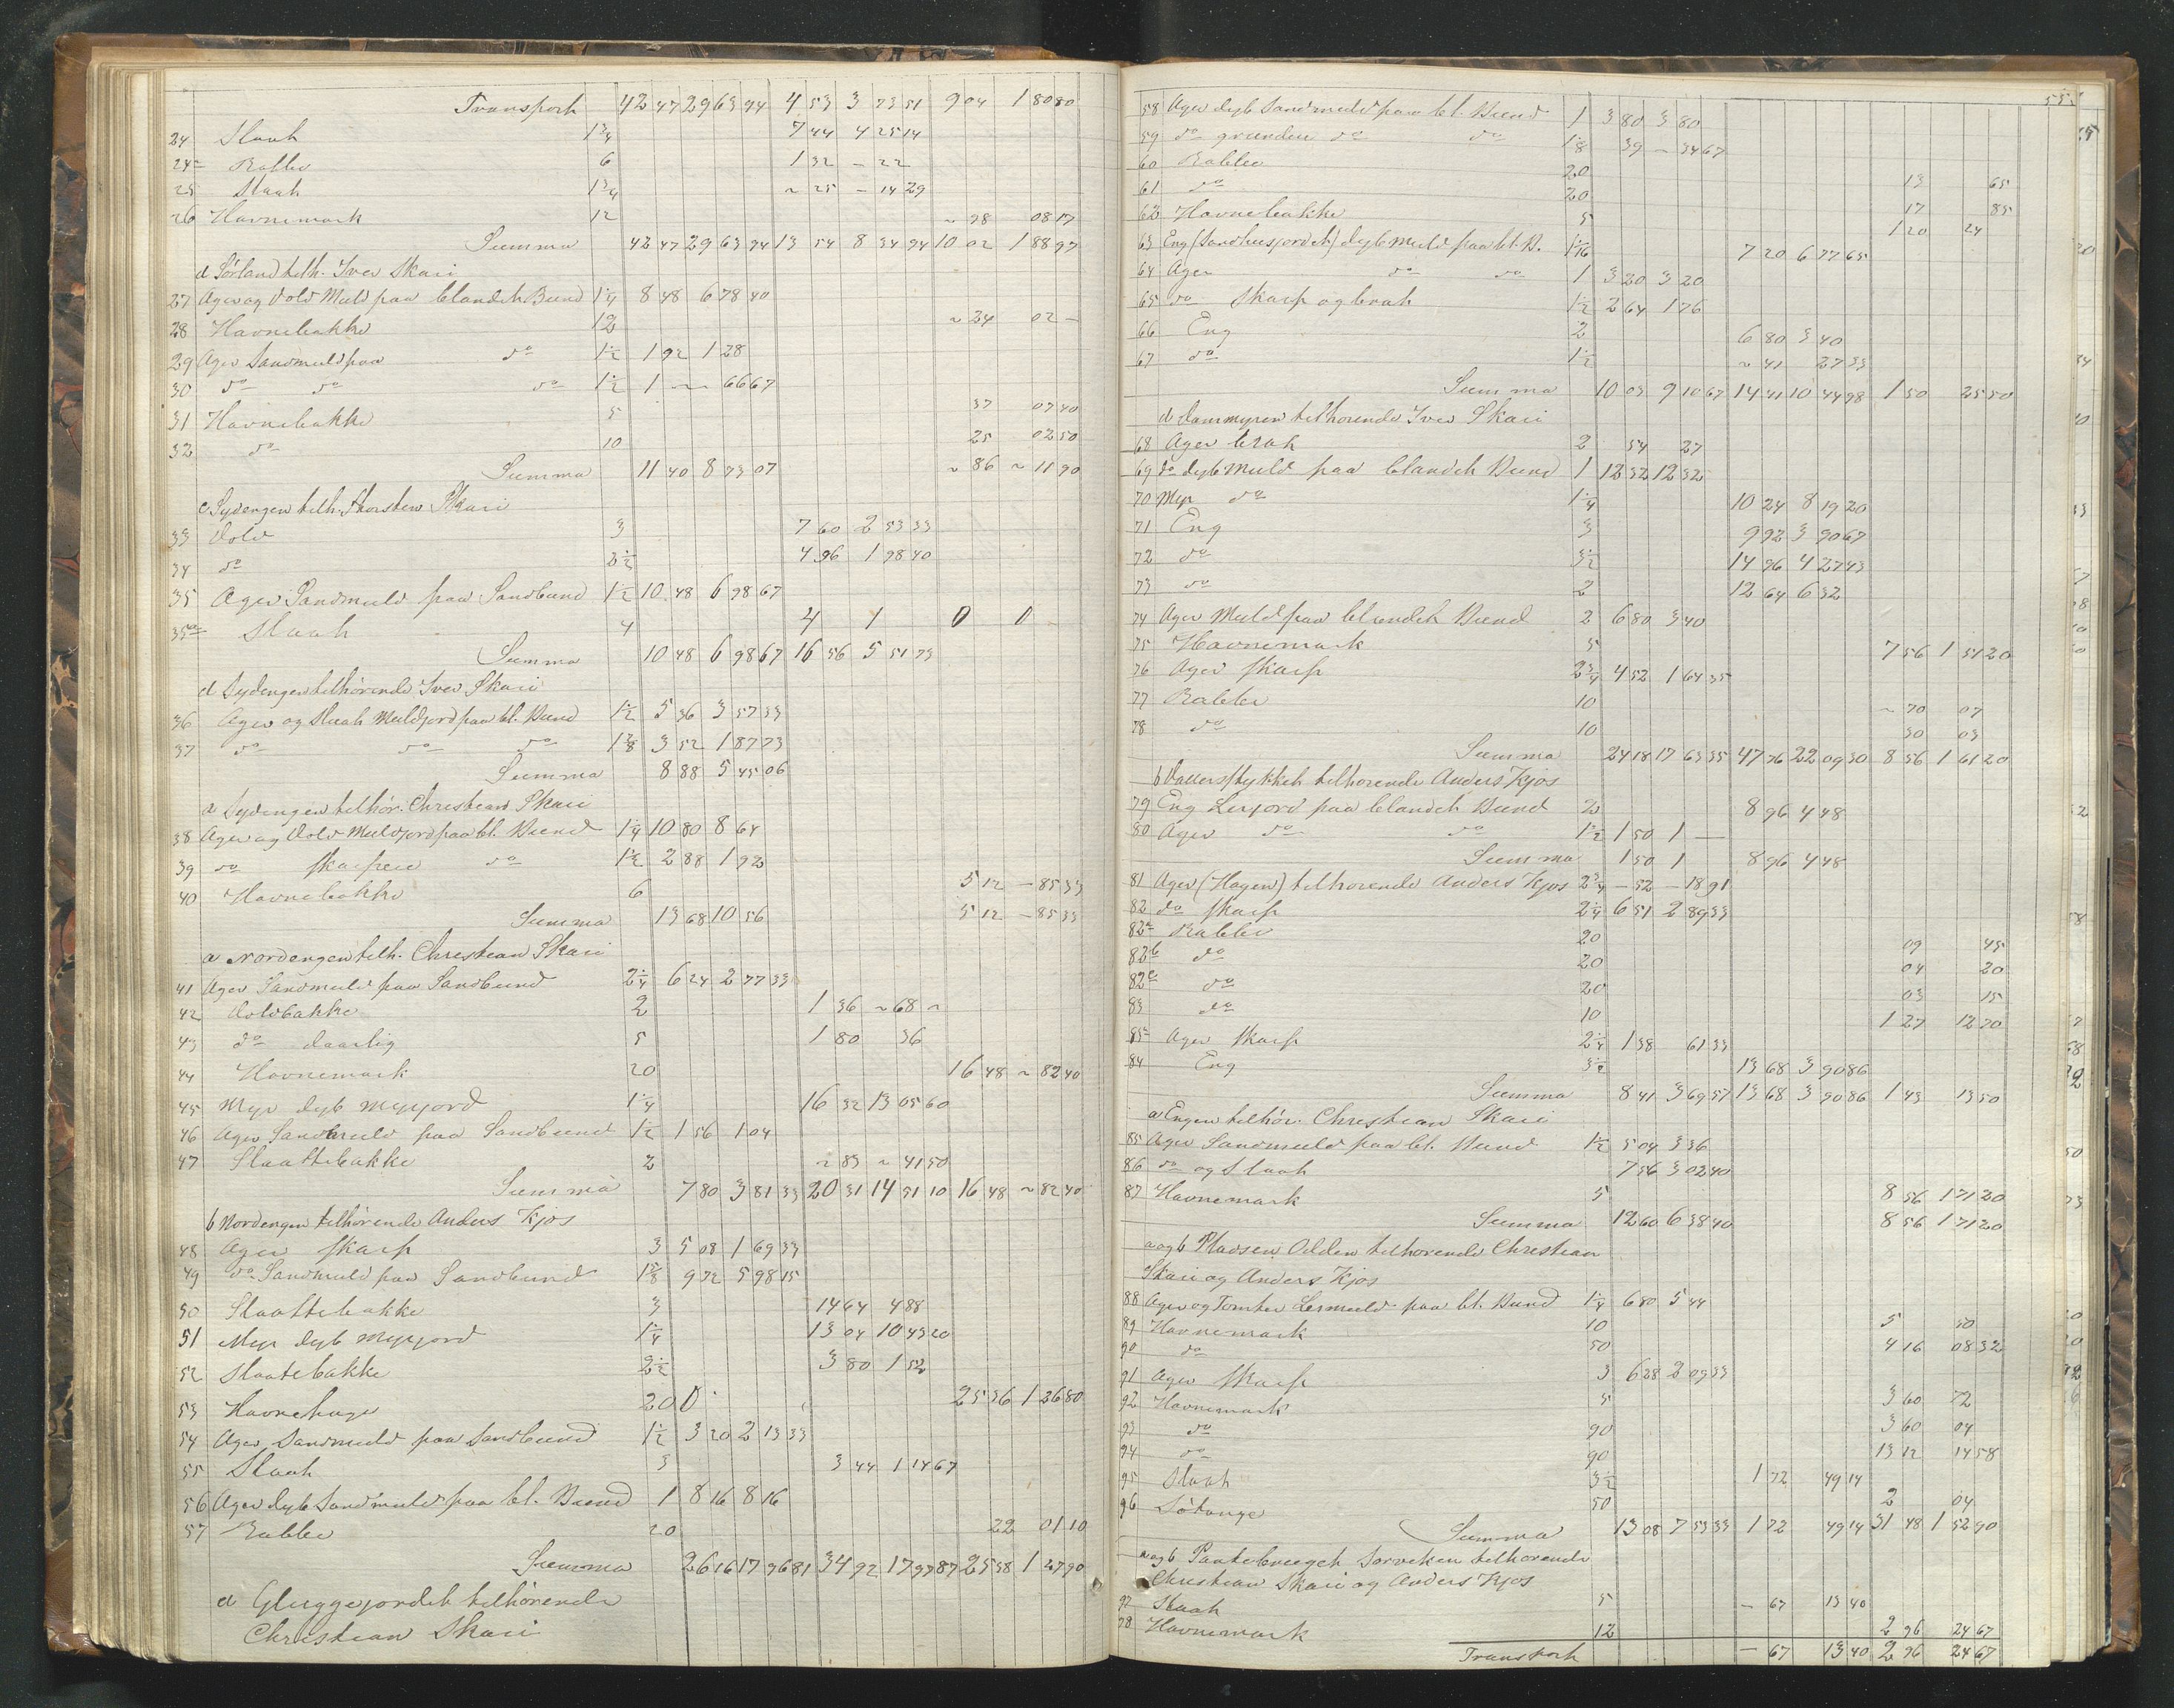 Transport 42 47 29 63 94 4 53 3 73 51 9 04 1 80 80
24 Slaat 1 3/4 7 44 4 25 14
24a Rabbe 6 1 32 – 22
25 Slaat 1 3/4 ~ 25 – 14 29
26 Havnemark 12 ~ 98 08 17
Summa 42 47 29 63 94 13 54 8 34 94 10 02 1 88 97
d Sörland tilh. Iver Skari
27 Ager og Vold Muld paa blandet Bund 1 1/4 8 48 6 78 40
28 Havnebakke 12 ~ 24 02 –
29 Ager Sandmuld paa do 1 1/2 1 92 1 28
30 do do do 1 1/2 1 ~ ~ 66 67
31 Havnebakke 5 37 07 40
32 do 10 25 02 50
Summa 11 40 8 73 07 ~ 86 ~ 11 90
c Sydengen tilh. Thorsten Skari
33 Vold 3 7 60 2 53 33
34 do 2 1/2 4 96 1 98 40
35 Ager Sandmuld paa Sandbund 1 1/2 10 48 6 98 67
35a Slaat 4 4 1 0 0
Summa 10 48 6 98 67 16 56 5 51 73
d Sydengen tilhörende Iver Skari
36 Ager og Slaat Muldjord paa bl. Bund 1 1/2 5 36 3 57 33
37 do do do 1 7/8 3 52 1 87 73
Summa 8 88 5 45 06
a Sydengen tilhör. Christian Skari
38 Ager og Vold Muldjord paa bl. Bund 1 1/4 10 80 8 64
39 do skarpere do 1 1/2 2 88 1 92
40 Havnebakke 6 5 12 – 85 33
Summa 13 68 10 56 5 12 – 85 33
a Nordengen tilh. Christian Skari
41 Ager Sandmuld paa Sandbund 2 1/4 6 24 2 77 33
42 Voldbakke 2 1 36 ~ 68 ~
43 do daarlig 5 1 80 36
44 Havnemark 20 16 48 ~ 82 40
45 Myr dyb Myrjord 1 1/4 16 32 13 05 60
46 Ager Sandmuld paa Sandbund 1 1/2 1 56 1 04
47 Slaattebakke 2 ~ 83 ~ 41 50
Summa 7 80 3 81 33 20 31 14 51 10 16 48 ~ 82 40
b Nordengen tilhörende Anders Kjos
48 Ager skarp 3 5 08 1 69 33
49 do Sandmuld paa Sandbund 1 5/8 9 72 5 98 15
50 Slaattebakke 3 14 64 4 88
51 Myr dyb Myrjord 1 1/4 13 04 10 43 20
52 Slaatebakke 2 1/2 3 80 1 52
53 Havnehage 20 0 25 36 1 26 80
54 Ager Sandmuld paa Sandbund 1 1/2 3 20 2 13 33
55 Slaat 3 3 44 1 14 67
56 Ager dyb Sandmuld paa bl. Bund 1 8 16 8 16
57 Rabbe 20 22 01 10
Summa 26 16 17 96 81 34 92 17 97 87 25 58 1 27 90
a Gluggejordet tilhörende
Christian Skari
58 Ager dyb Sandmuld paa bl. Bund 1 3 80 3 80
59 do grundere do do 1 1/8 39 – 34 67
60 Rabbe 20 13 65
61 do 20 17 85
62 Havnebakke 5 1 20 24
63 Eng (Sandhusjordet) dyb Muld paa bl. B. 1 1/16 7 20 6 77 65
64 Ager do do 1 3 20 3 20
65 do skarp og brat 1 1/2 2 64 1 76
66 Eng 2 6 80 3 40
67 do 1 1/2 ~ 41 27 33
Summa 10 03 9 10 67 14 41 10 44 98 1 50 25 50
d Dammyren tilhörende Iver Skari
68 Ager brat 2 54 27
69 do dyb Muld paa blandet Bund 1 12 32 12 32
70 Myr do 1 1/4 10 24 8 19 20
71 Eng 3 9 92 3 30 67
72 do 3 1/2 14 96 4 27 43
73 do 2 12 64 6 32
74 Ager Muld paa blandet Bund 2 6 80 3 40
75 Havnemark 5 7 56 1 51 20
76 Ager skarp 2 3/4 4 52 1 64 35
77 Rabbe 10 ~ 70 07
78 do 10 30 03
Summa 24 18 17 63 35 47 76 22 09 30 8 56 1 61 20
b stykket tilhörende Anders Kjos
79 Eng Lerjord paa blandet Bund 2 8 96 4 48
80 Ager do do 1 1/2 1 50 1 –
Summa 1 50 1 8 96 4 48
81 Ager (Hagen) tilhörende Anders Kjos 2 3/4 – 52 – 18 91
82 do skarp 2 1/4 6 51 2 89 33
82a Rabbe 20 09 45
82b do 20 04 20
82c do 20 03 15
83 do 10 1 27 12 70
83a Ager skarp 2 1/4 1 38 61 33
84 Eng 3 1/2 13 68 3 90 86
Summa 8 41 3 69 57 13 68 3 90 86 1 43 13 50
a Engen tilhör. Christian Skari
85 Ager Sandmuld paa bl. Bund 1 1/2 5 04 3 36
86 do og Slaat 7 56 3 02 40
87 Havnemark 5 8 56 1 71 20
Summa 12 60 6 38 40 8 56 1 71 20
a og b Pladsen Odden tilhörende Christian
Skari og Anders Kjos
88 Ager og Tomter Lermuld paa bl. Bund 1 1/4 6 80 5 44
89 Havnemark 10 5 50
90 do 50 4 16 08 32
91 Ager skarp 3 6 28 2 09 33
92 Havnemark 5 3 60 72
93 do 90 3 60 04
94 do 90 13 12 14 58
95 Slaat 3 1/2 1 72 49 14
96 50 2 04
Summa 13 08 7 53 33 1 72 49 14 31 48 1 52 90
a og b tilhörende
Christian Skari og Anders Kjos
97 Slaat 5 – 67 13 40
98 Havnemark 12 2 96 24 67
Transport – 67 13 40 2 96 24 67